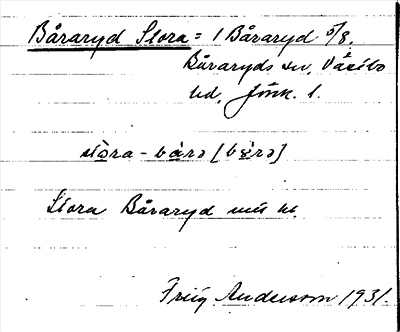 Båraryd Stora = 1 Båraryd 5/8.
Båraryds sn, Västbo
hd, Jönk. l.
stora - bårə [bårə]
Stora Båraryd
Frig. Andersson 1931.